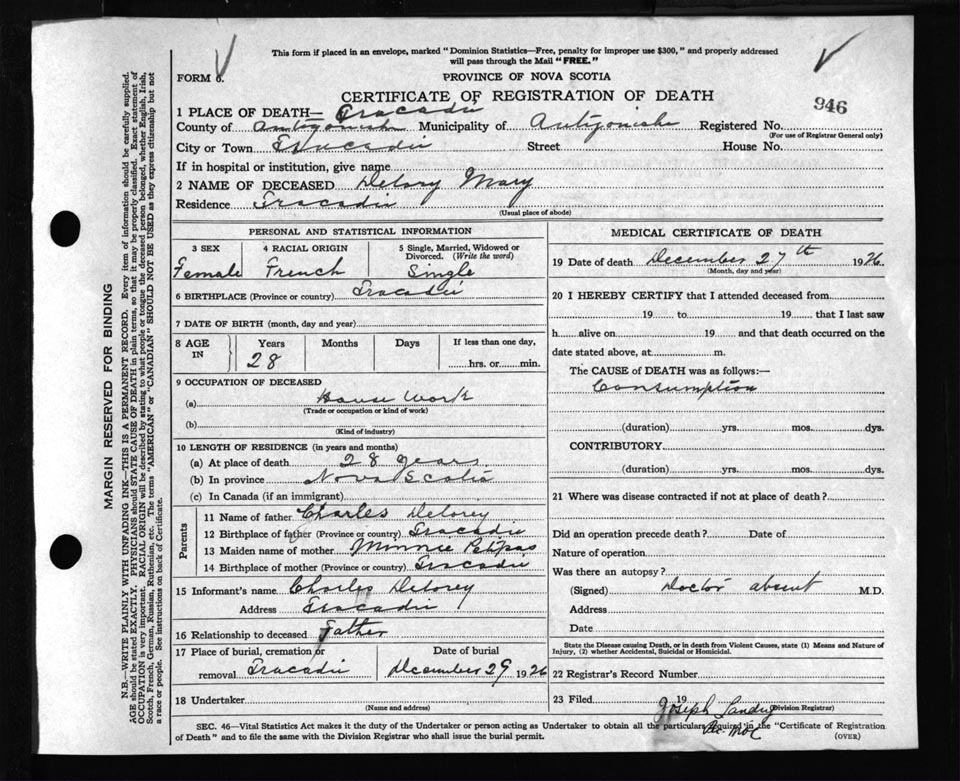 This form if placed in an envelope, marked "Dominion Statistics—Free, penalty for improper use $300," and properly addressed
will pass through the Mail "FREE."
FORM 6.
PROVINCE OF NOVA SCOTIA
CERTIFICATE OF REGISTRATION OF DEATH
946
1 PLACE OF DEATH— Tracadie
County of Antigonish Municipality of Antigonishe Registered No.
(For use of Registrar General only)
City or Town Tracadie Street House No.
If in hospital or institution, give name
2 NAME OF DECEASED Delory Mary
Residence Tracadie
(Usual place of abode)
PERSONAL AND STATISTICAL INFORMATION
3 SEX 4 RACIAL ORIGIN 5 Single, Married, Widowed or
Divorced. (Write the word)
Female French Single
6 BIRTHPLACE (Province or country) Tracadie
7 DATE OF BIRTH (month, day and year)
8 AGE IN Years Months Days If less than one day,
28 hrs. or min.
9 OCCUPATION OF DECEASED
(a) House Work
(Trade or occupation or kind of work)
(b)
(Kind of industry)
10 LENGTH OF RESIDENCE (in years and months)
(a) At place of death 28 years
(b) In province Nova Scotia
(c) In Canada (if an immigrant)
Parents
11 Name of father Charles Delorey
12 Birthplace of father (Province or country) Tracadie
13 Maiden name of mother Minnie Petipas
14 Birthplace of mother (Province or country) Tracadie
15 Informant's name Charles Delorey
Address Tracadie
16 Relationship to deceased Father
17 Place of burial, cremation or Date of burial
removal Tracadie December 29 1926
18 Undertaker
(Name and address)
MEDICAL CERTIFICATE OF DEATH
19 Date of death December 27th 1926.
(Month, day and year)
20 I HEREBY CERTIFY that I attended deceased from
19 to 19 that I last saw
h alive on 19 and that death occurred on the
date stated above, at m.
The CAUSE of DEATH was as follows:—
Consumption
(duration) yrs. mos. dys.
CONTRIBUTORY
(duration) yrs. mos. dys.
21 Where was disease contracted if not at place of death?
Did an operation precede death? Date of
Nature of operation
Was there an autopsy?
(Signed) Doctor absent M.D.
Address
Date
State the Disease causing Death, or in death from Violent Causes, state (1) Means and Nature of
Injury, (2) whether Accidental, Suicidal or Homicidal.
22 Registrar's Record Number
23 Filed 19
Joseph Landry
(Division Registrar)
SEC. 46—Vital Statistics Act makes it the duty of the Undertaker or person acting as Undertaker to obtain all the particulars required in the "Certificate of Registration
of Death" and to file the same with the Division Registrar who shall issue the burial permit.
(OVER)
MARGIN RESERVED FOR BINDING
N.B.—WRITE PLAINLY WITH UNFADING INK—THIS IS A PERMANENT RECORD. Every item of information should be carefully supplied.
AGE should be stated EXACTLY. PHYSICIANS should STATE CAUSE OF DEATH in plain terms, so that it may be properly classified. Exact statement of
OCCUPATION is very important. RACIAL ORIGIN will be described by stating to what people or tongue the deceased person belonged, whether English, Irish,
Scotch, French, German, Russian, Ruthenian, etc. The terms "AMERICAN" or "CANADIAN" SHOULD NOT BE USED as they express citizenship but not
a race or people. See instructions on back of Certificate.